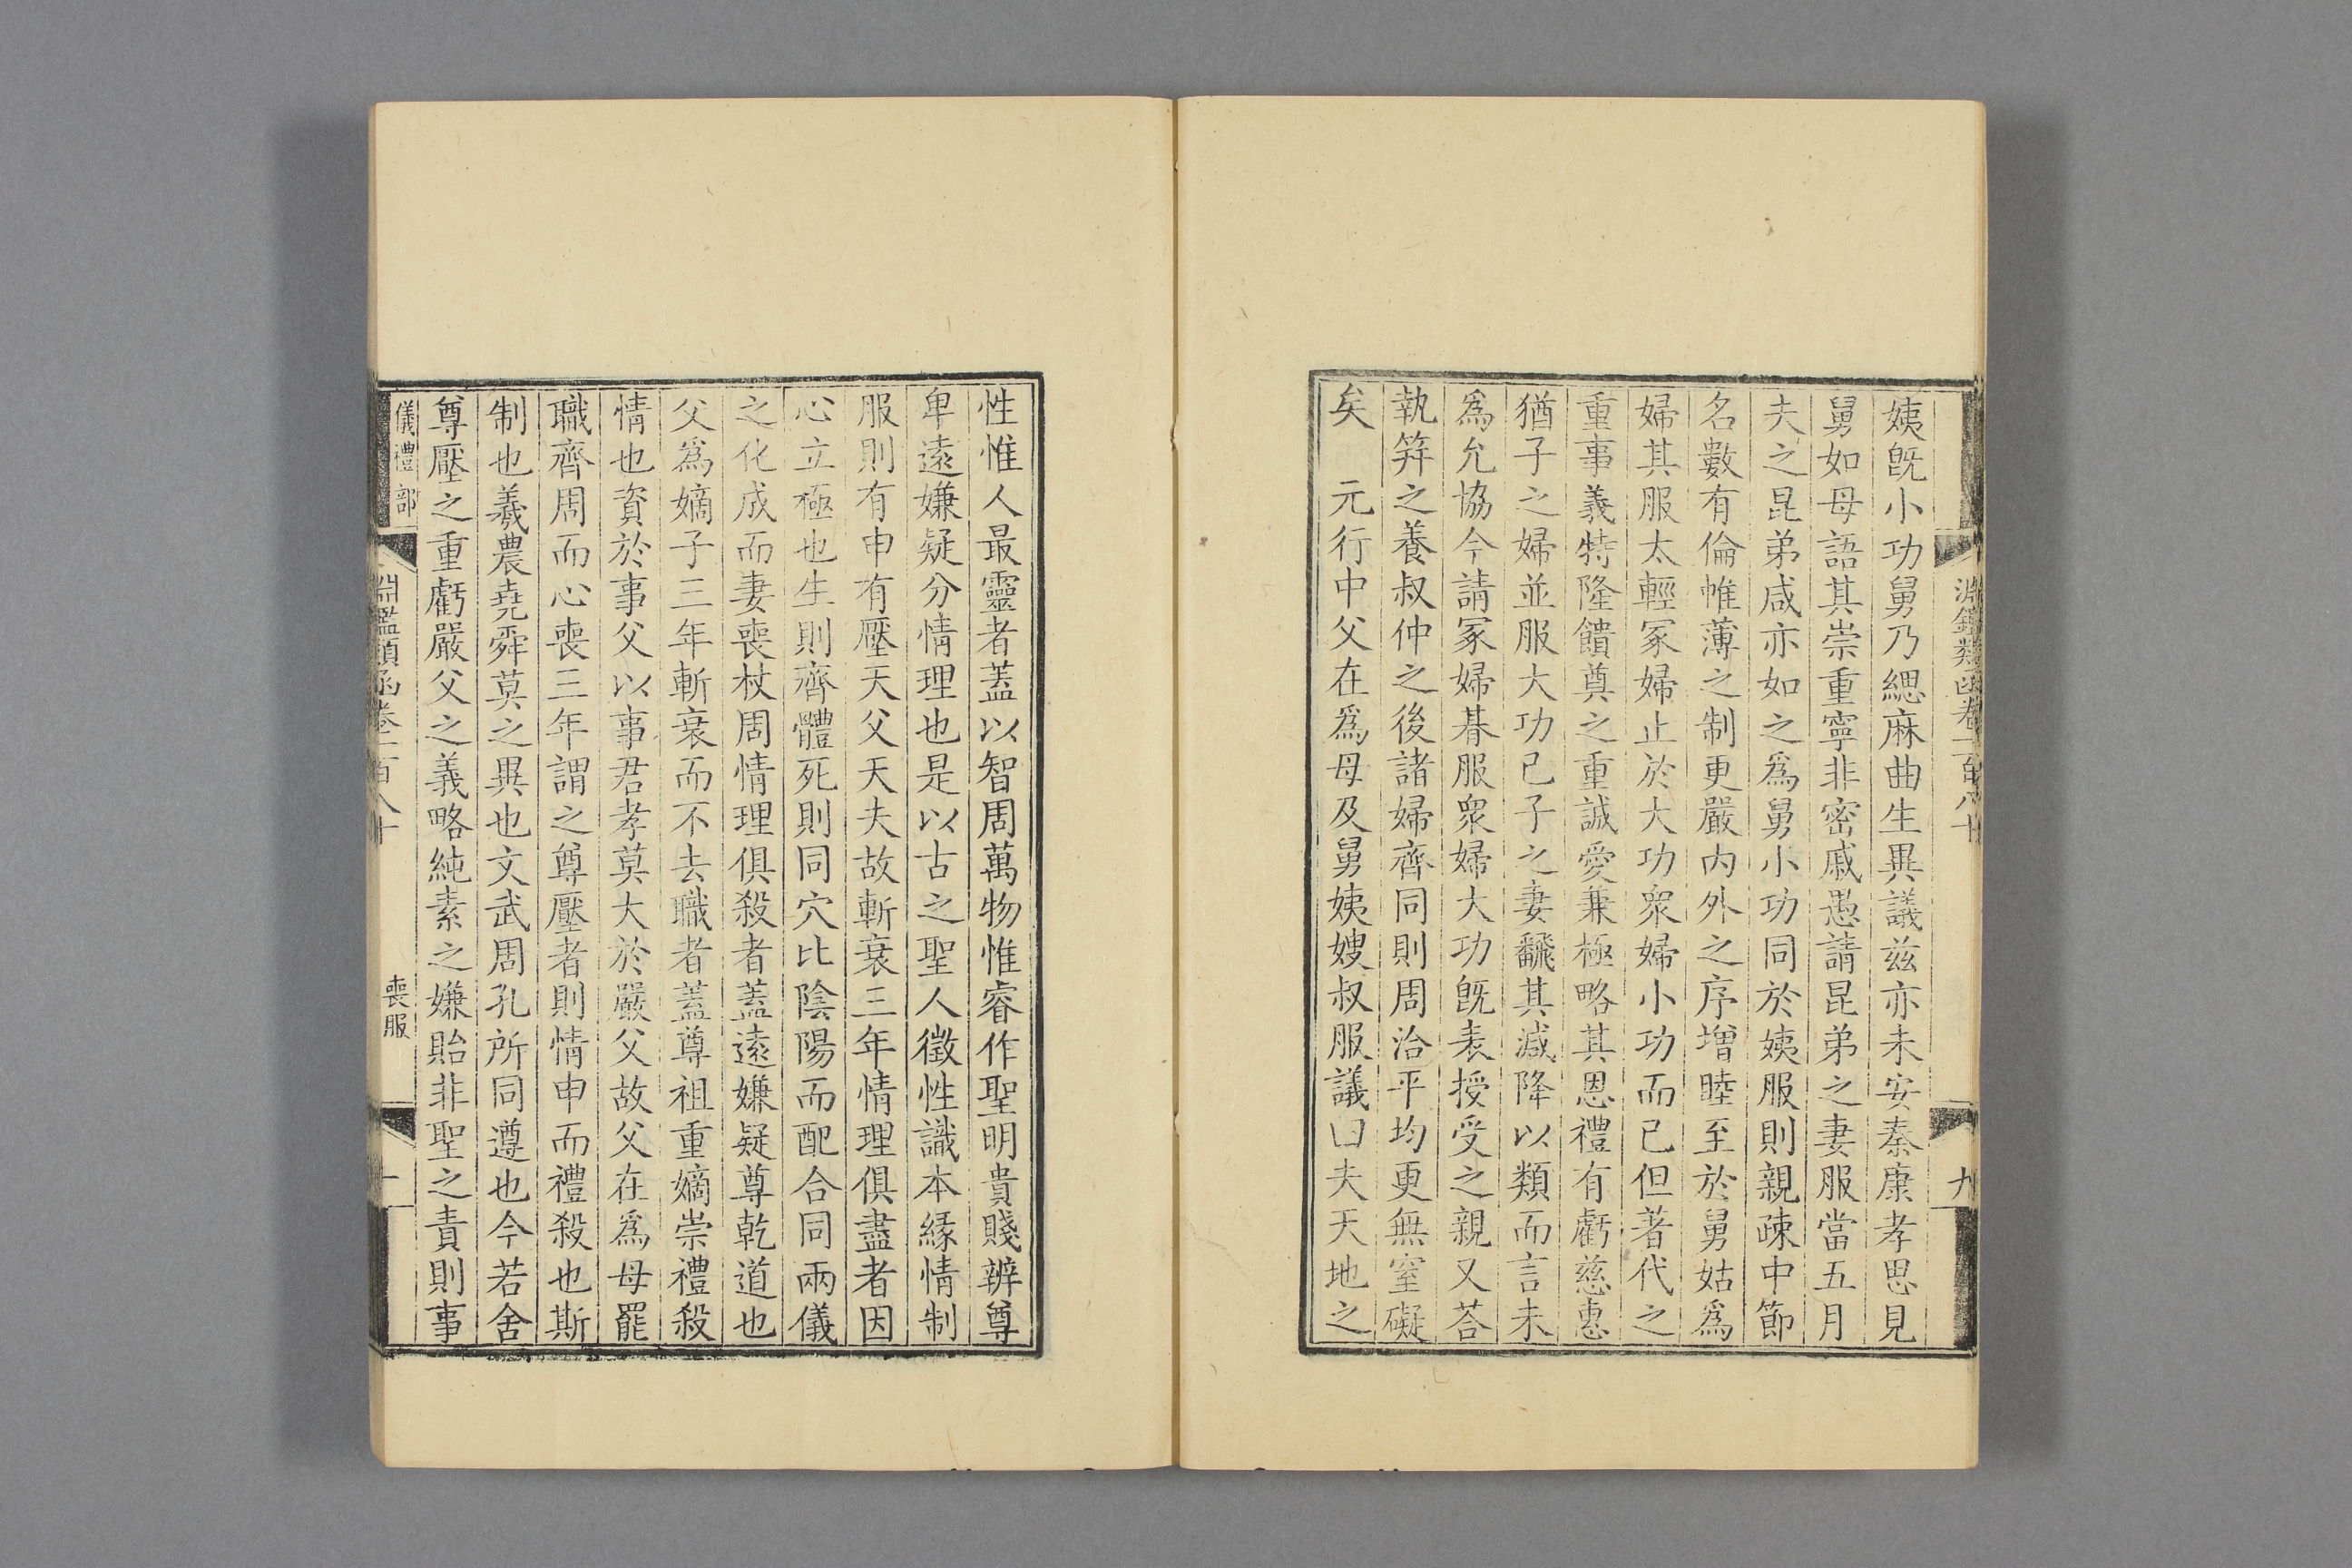 淵鑑類函卷一百八十
九
姨旣小功舅乃緦麻曲生異議兹亦未安秦康孝思見
舅如母語其崇重寧非密戚愚請昆弟之妻服當五月
夫之昆弟咸亦如之爲舅小功同於姨服則親疎中節
名數有倫帷薄之制更嚴內外之序增睦至於舅姑爲
婦其服太輕冢婦止於大功衆婦小功而已但著代之
重事義特隆饋奠之重誠愛兼極略其恩禮有虧慈惠
猶子之婦並服大功已子之妻飜其減降以類而言未
爲允協今請冢婦朞服衆婦大功旣表授受之親又荅
執笄之養叔仲之後諸婦齊同則周洽平均更無窒礙
矣 元行中父在爲母及舅姨嫂叔服議曰夫天地之
性惟人最靈者蓋以智周萬物惟睿作聖明貴賤辨尊
卑遠嫌疑分情理也是以古之聖人徵性識本緣情制
服則有申有壓天父天夫故斬衰三年情理俱盡者因
心立極也生則齊體死則同穴比陰陽而配合同兩儀
之化成而妻喪杖周情理俱殺者蓋遠嫌疑尊乾道也
父爲嫡子三年斬衰而不去職者蓋尊祖重嫡崇禮殺
情也資於事父以事君孝莫大於嚴父故父在爲母罷
職齊周而心喪三年謂之尊壓者則情申而禮殺也斯
制也羲農堯舜莫之異也文武周孔所同遵也今若舍
尊壓之重虧嚴父之義略純素之嫌貽非聖之責則事
儀禮部
淵鑑類函卷一百八十
喪服